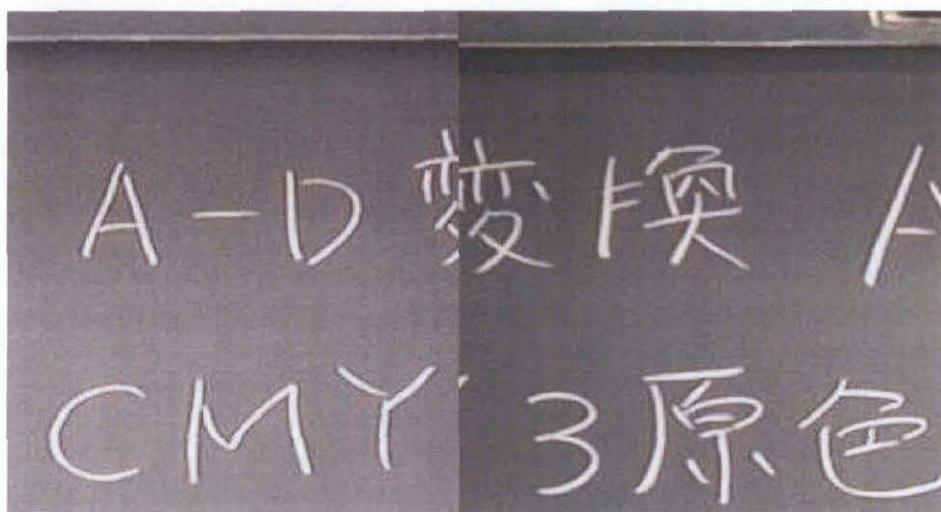 A-D変換 A
CMY 3原色